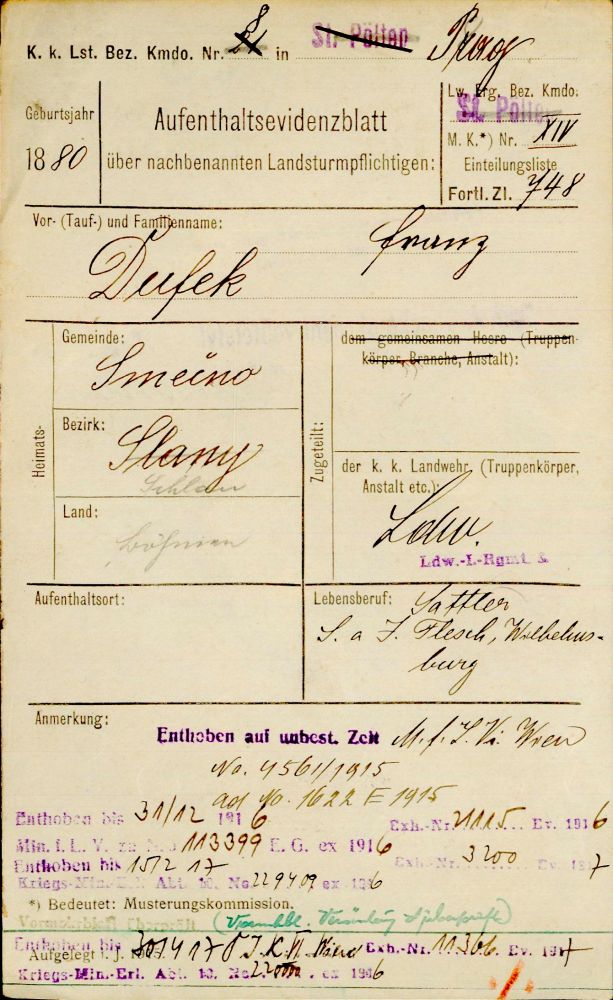 K. k. Lst. Bez. Kmdo. Nr. 8 in St. Pölten Prag
Lw. Erg. Bez. Kmdo.
St. Pölten
Geburtsjahr
1880
Aufenthaltsevidenzblatt
über nachbenannten Landsturmpflichtigen:
M. K.*) Nr. XIV
Einteilungsliste
Fortl. Zl. 748
Vor- (Tauf-) und Familienname:
Franz
Dufek
Heimats-
Gemeinde:
Smečno
Bezirk:
Slany
Schlan
Land:
Böhmen
Zugeteilt:
dem gemeinsamen Heere (Truppen-
körper, Branche, Anstalt):
der k. k. Landwehr. (Truppenkörper,
Anstalt etc.):
Ldw.
Ldw.-I.-Rgmt.
Aufenthaltsort:
Lebensberuf: Sattler
S. a J. Flesch, Wilhelms-
burg
Anmerkung:
Enthoben auf unbest. Zeit M. f. L. V. Wien
No. 4561/1915
ad No. 1622 E 1915
Enthoben bis 31/12 1916 Exh.-Nr. 2115 Ev. 1916
Min. f. L. V. zu No. 113399 E. G. ex 1916
Exh.-Nr. 3200 Ev. 1917
Enthoben bis 15/2 17
Kriegs-Min.-Erl. Abt. 10. No. 229409 ex 1916
*) Bedeutet: Musterungskommission.
Vormerkblatt überprüft
Enthoben bis 30/4 17 Wien Exh.-Nr. 11306 Ev. 1917
Aufgelegt i. J.
Kriegs-Min.-Erl. Abt. 10. No. ex 1916